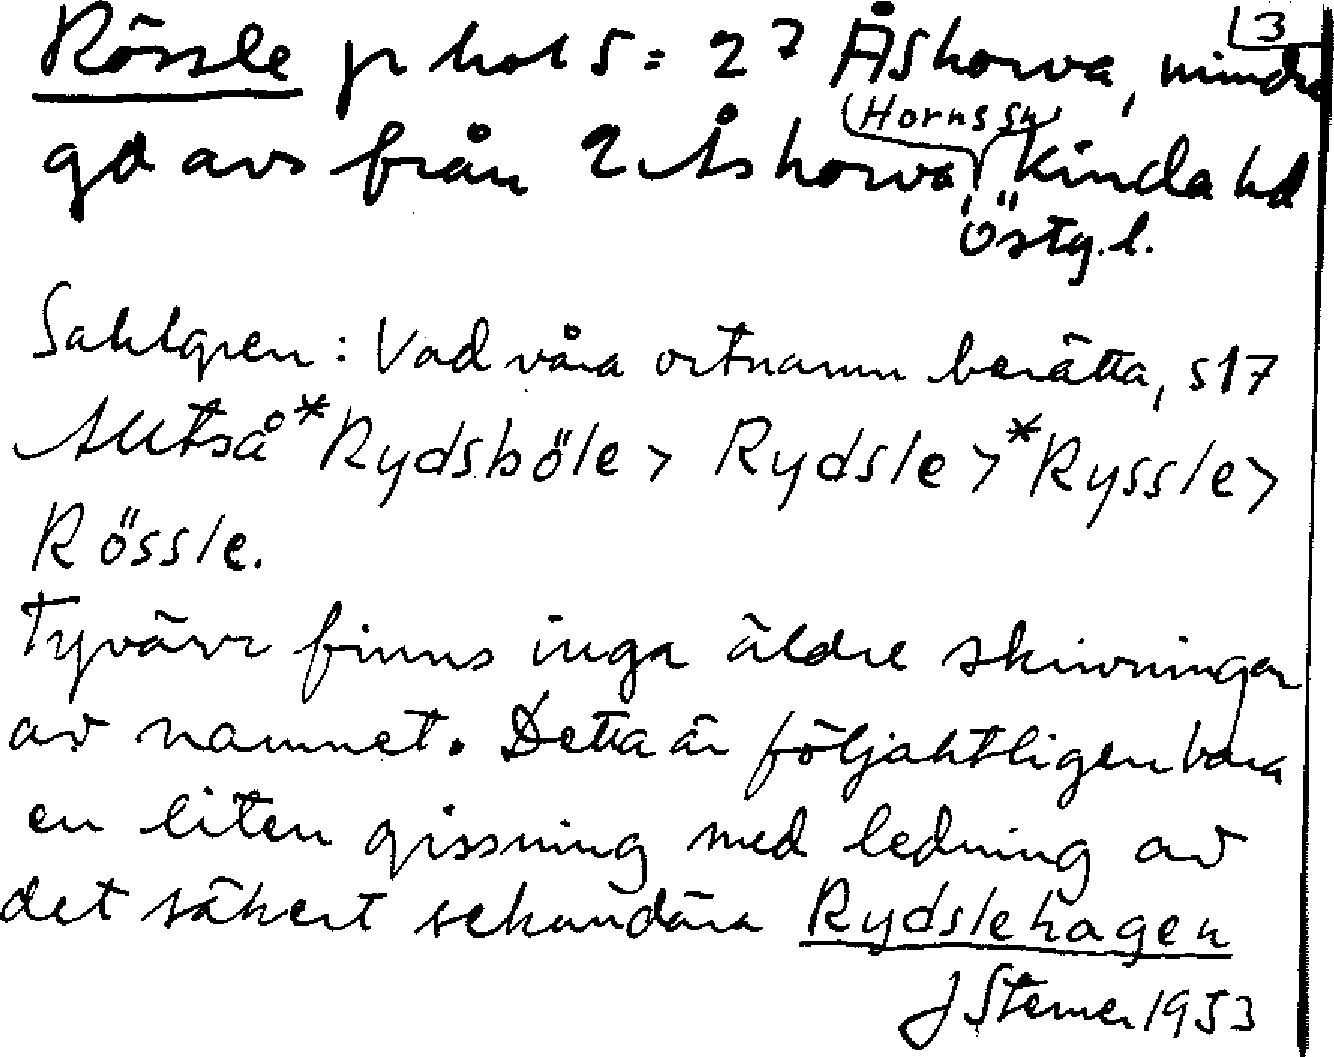 3
Rössle jr kol 5 = 2⁷ Åshorva, mindre
gd avs från 2 Åshorva, Kinda hd
Horns sn
Östg. l.
Sahlgren: Vad våra ortnamn berätta, s 17
Alltså *Rydsböle > Rydsle > *Ryssle >
Rössle.
Tyvärr finns inga äldre skrivningar
av namnet. Detta är följaktligen bara
en liten gissning med ledning av
det säkert sekundära Rydslehagen
J Sterner 1953